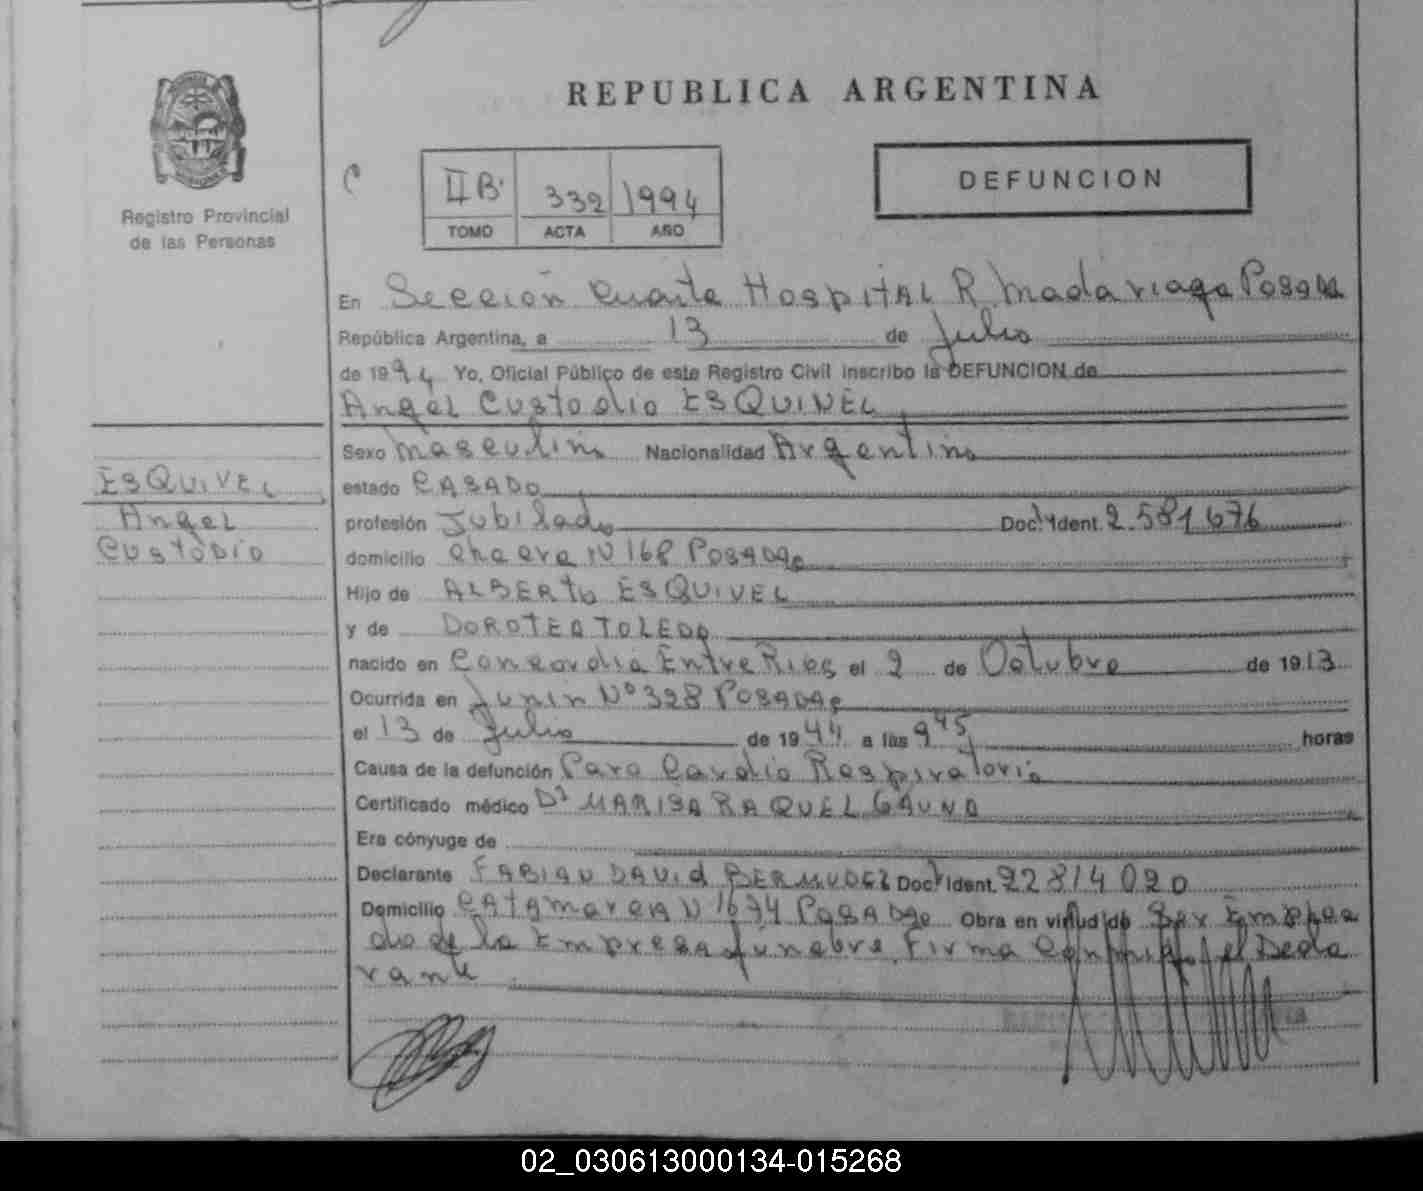 REPUBLICA ARGENTINA
DEFUNCION
IIB. 332 1994
TOMO ACTA AÑO
Registro Provincial
de las Personas
En Sección Cuarta Hospital R Madariaga Posadas
República Argentina, a 13 de Julio
de 1994 Yo, Oficial Público de este Registro Civil inscribo la DEFUNCION de
Angel Custodio ESQUIVEL
Sexo Masculino Nacionalidad Argentino
ESQUIVEL
Angel
Custodio
estado CASADO
profesión Jubilado Doc. Ident. 2.581.676
domicilio Chacra N 168 Posadas
Hijo de ALBERTO ESQUIVEL
y de DOROTEA TOLEDO
nacido en Concordia Entre Rios el 2 de Octubre de 1913
Ocurrida en Junin Nº 328 Posadas
el 13 de Julio de 1994 a las 9 45 horas
Causa de la defunción Paro Cardio Respiratorio
Certificado médico MARISA RAQUEL GAUNA
Era cónyuge de
Declarante FABIAN DAVID BERMUDEZ Doc. Ident. 22814020
Domicilio Catamarca N 1674 Posadas Obra en virtud de Ser Emplea
do de la Empresa funebre Firma el Decla
rante
02_030613000134-015268